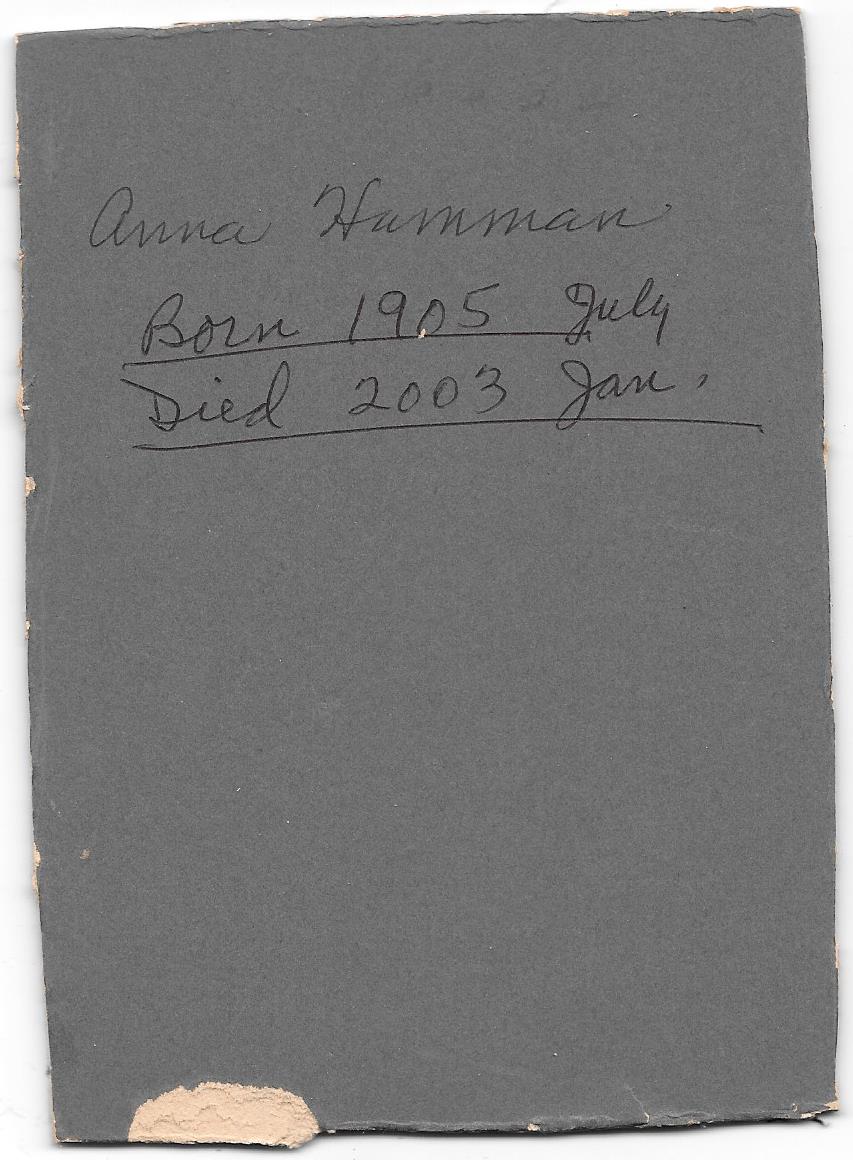 Anna Hamman
Born 1905 July
Died 2003 Jan.